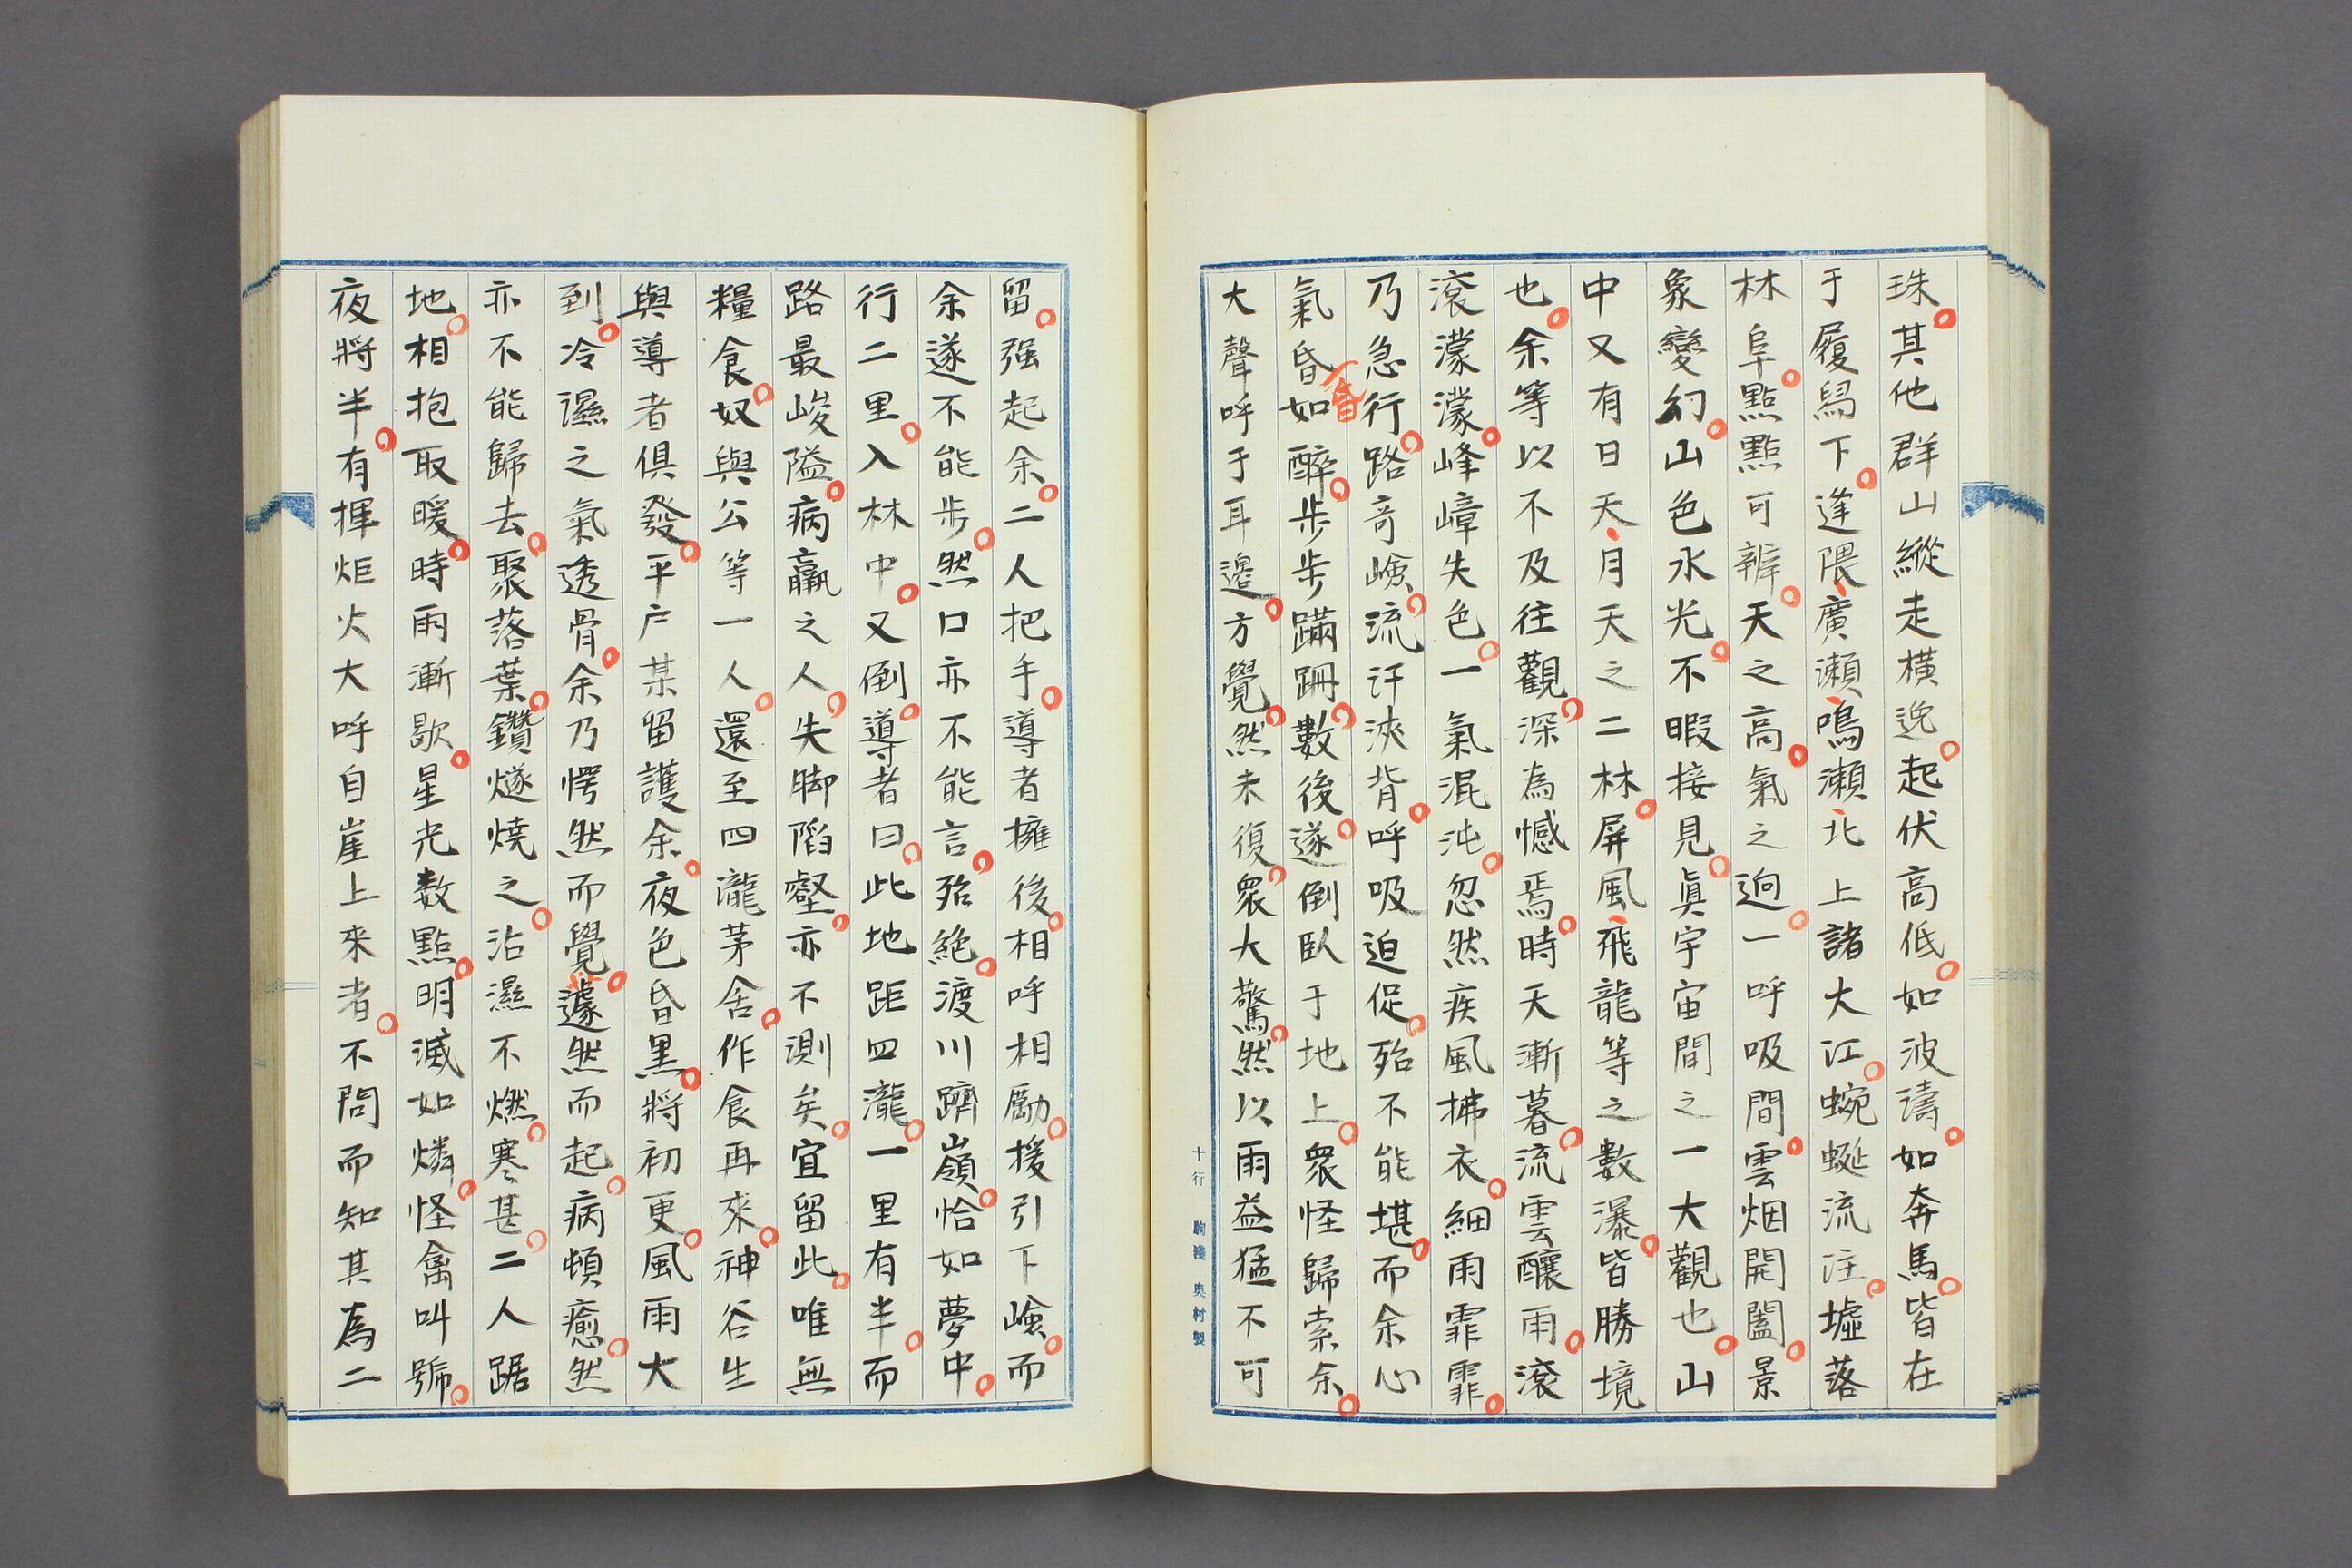 珠其他群山縱走橫逸起伏高低如波濤如奔馬皆在
于履舄下逢隈廣瀨鳴瀨北上諸大江蜿蜒流注墟落
林阜點點可辨天之高氣之逈一呼吸間雲烟開闔景
象變幻山色水光不暇接見眞宇宙間之一大觀也山
中又有日天月天之二林屏風飛龍等之數瀑皆勝境
也余等以不及往觀深為憾焉時天漸暮流雲釀雨滾
滾濛濛峰嶂失色一氣混沌忽然疾風拂衣細雨霏霏
乃急行路竒嶮流汗浹背呼吸迫促殆不能堪而余心
氣昏昏如醉步步蹣跚數後遂倒臥于地上衆怪歸索余
大聲呼于耳邊方覺然未復衆大驚然以雨益猛不可
十行 駒棧 奥村製
留强起余二人把手導者擁後相呼相勵援引下嶮而
余遂不能步然口亦不能言殆絶渡川躋嶺恰如夢中
行二里入林中又倒導者曰此地距四瀧一里有半而
路最峻隘病羸之人失脚陷壑亦不測矣宜留此唯無
糧食奴與公等一人還至四瀧茅舍作食再來神谷生
與導者俱發平戶某留護余夜色昏黑將初更風雨大
到冷濕之氣透骨余乃愕然而覺蘧然而起病頓癒然
亦不能歸去聚落葉鑽燧燒之沾濕不燃寒甚二人踞
地相抱取暖時雨漸歇星光数點明滅如燐怪禽叫號
夜將半有揮炬火大呼自崖上來者不問而知其為二